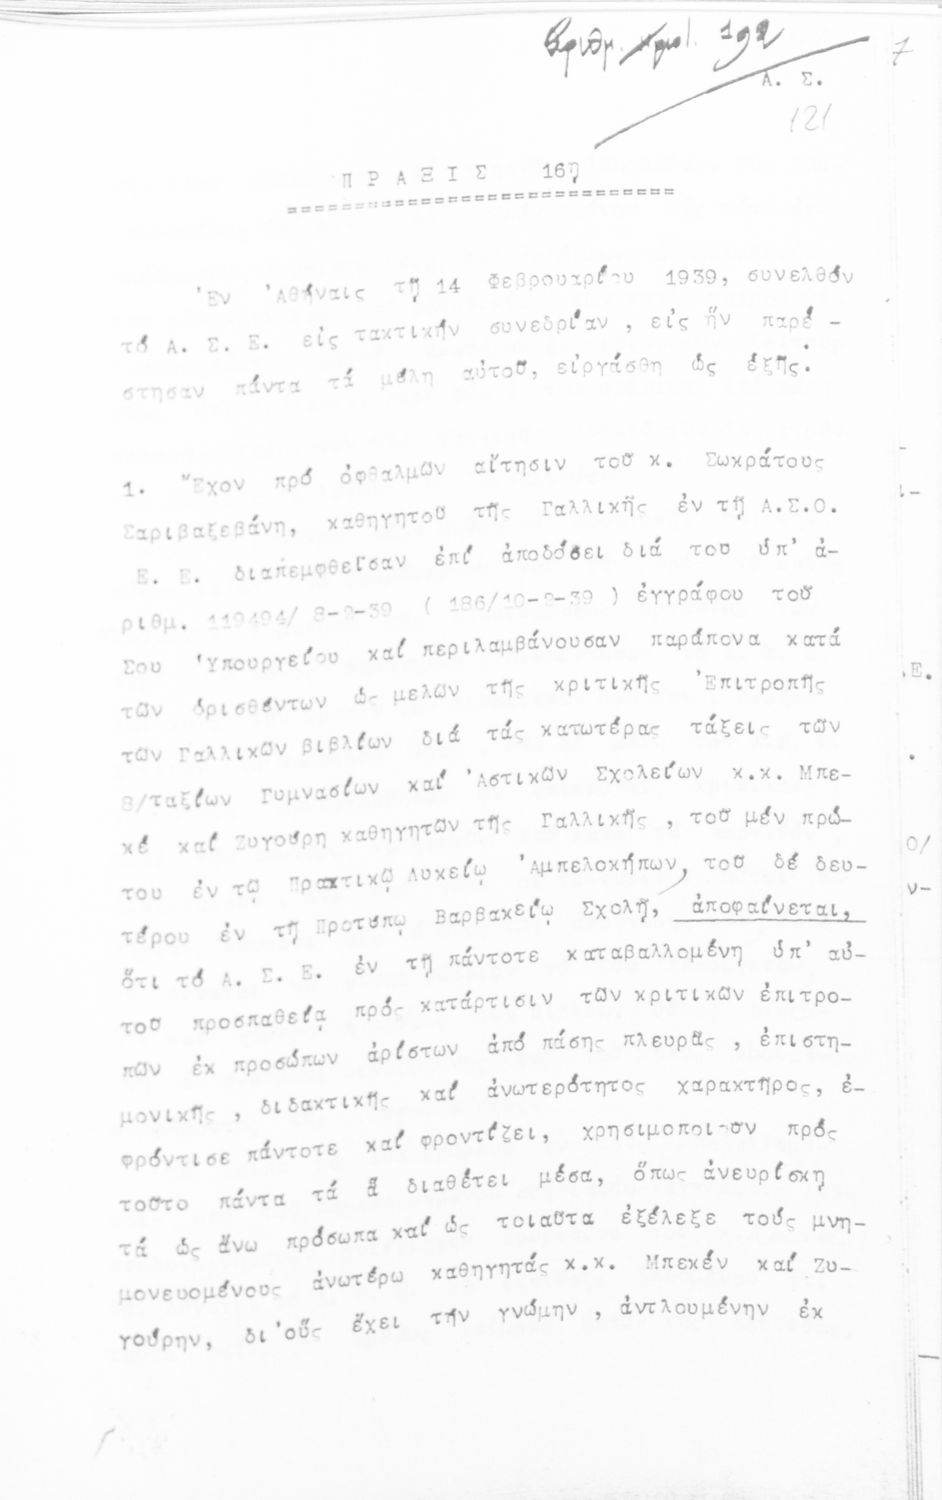 Ἀριθμ. πρωτ. 192
7
Α. Σ.
121
ΠΡΑΞΙΣ 16η
Ἐν Ἀθήναις τῇ 14 Φεβρουαρίου 1939, συνελθόν
τό Α. Σ. Ε. εἰς τακτικήν συνεδρίαν, εἰς ἥν παρέ-
στησαν πάντα τά μέλη αὐτοῦ, εἰργάσθη ὡς ἑξῆς.
1. Ἔχον πρό ὀφθαλμῶν αἴτησιν τοῦ κ. Σωκράτους
Σαριβαξεβάνη, καθηγητοῦ τῆς Γαλλικῆς ἐν τῇ Α.Σ.Ο.
Ε. Ε. διαπεμφθεῖσαν ἐπί ἀποδόσει διά του ὑπ' ἀ-
ριθμ. 119494/ 8-2-39 ( 186/10-2-39 ) ἐγγράφου τοῦ
Σου Ὑπουργείου καί περιλαμβάνουσαν παράπονα κατά
τῶν ὁρισθέντων ὡς μελῶν τῆς κριτικῆς Ἐπιτροπῆς
τῶν Γαλλικῶν βιβλίων διά τάς κατωτέρας τάξεις τῶν
8/ταξίων Γυμνασίων καί Ἀστικῶν Σχολείων κ.κ. Μπε-
κέ καί Ζυγούρη καθηγητῶν τῆς Γαλλικῆς, τοῦ μέν πρώ-
του ἐν τῷ Πρακτικῷ Λυκείῳ Ἀμπελοκήπων, τοῦ δέ δευ-
τέρου ἐν τῇ Προτύπῳ Βαρβακείῳ Σχολῇ, ἀποφαίνεται,
ὅτι τό Α. Σ. Ε. ἐν τῇ πάντοτε καταβαλλομένη ὑπ' αὐ-
τοῦ προσπαθείᾳ πρός κατάρτισιν τῶν κριτικῶν ἐπιτρο-
πῶν ἐκ προσώπων ἀρίστων ἀπό πάσης πλευρᾶς, ἐπιστη-
μονικῆς, διδακτικῆς καί ἀνωτερότητος χαρακτῆρος, ἐ-
φρόντισε πάντοτε καί φροντίζει, χρησιμοποιοῦν πρός
τοῦτο πάντα τά ἅ διαθέτει μέσα, ὅπως ἀνευρίσκη
τά ὡς ἄνω πρόσωπα καί ὡς τοιαῦτα ἐξέλεξε τούς μνη-
μονευομένους ἀνωτέρω καθηγητάς κ.κ. Μπεκέν καί Ζυ-
γούρην, δι' οὕς ἔχει τήν γνώμην, ἀντλουμένην ἐκ